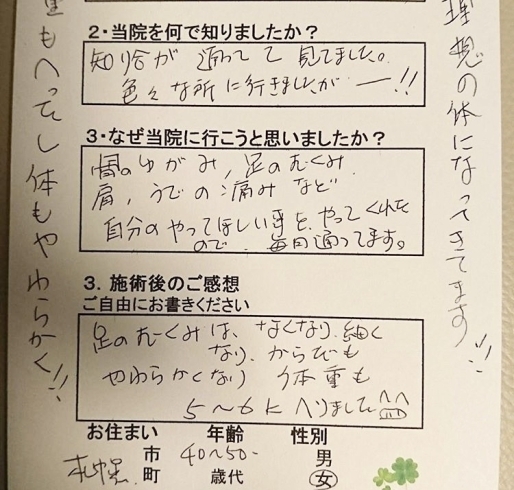 2・当院を何で知りましたか？
知り合が 通って て 見てました。
色々な所に行きましたが ー!!
3・なぜ当院に行こうと思いましたか？
骨のゆがみ, 足のむくみ
肩, うでの痛みなど
自分のやってほしい事を、やってくれた
ので、毎月通ってます。
3. 施術後のご感想
ご自由にお書きください
足のむくみは、なくなり 細く
なり、からだも
やわらかくなり 体重も
5〜6k へりました
お住まい 年齢 性別
札幌 市 40〜50- 男
町 歳代 女
理想の体になってきてます!!
重もへったし体もやわらかく!!